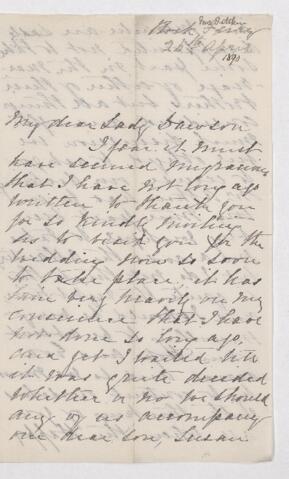 Rock Ferry
25th April
1890
My dear Lady Dawson
I fear it must
have seemed ungracious
that I have not long ago
written to thank you
for so kindly inviting
us to visit you for the
wedding now so soon
to take place, it has
been very heavily on my
conscience that I have
not done so long ago,
and yet I waited till
it was quite decided
whether or no we should
any of us accompany
our dear son, Susan